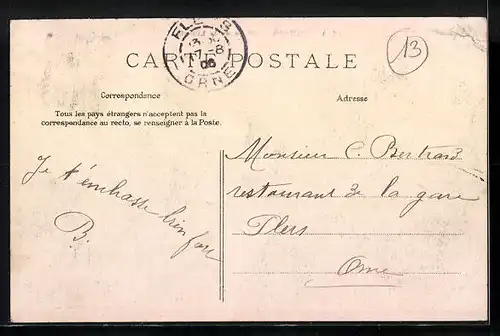 FLERS
13
7 - 8
06
ORNE
CARTE POSTALE
13
Correspondance
Adresse
Tous les pays étrangers n'acceptent pas la
correspondance au recto, se renseigner à la Poste.
Je t'embrasse bien fort
B.
Monsieur C. Bertrand
restaurant de la gare
Flers
Orne